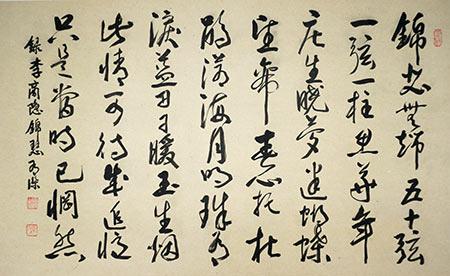 錦瑟無端五十弦
一弦一柱思華年
庄生曉夢迷蝴蝶
望帝春心托杜
鵑滄海月明珠有
淚藍田日暖玉生烟
此情可待成追憶
只是當時已惘然
錄李商隱錦瑟